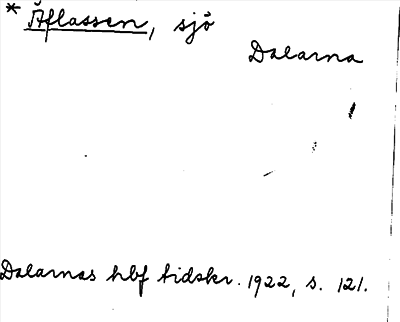 * Äflassen, sjö
Dalarna
Dalarnas hbf tidskr. 1922, s. 121.